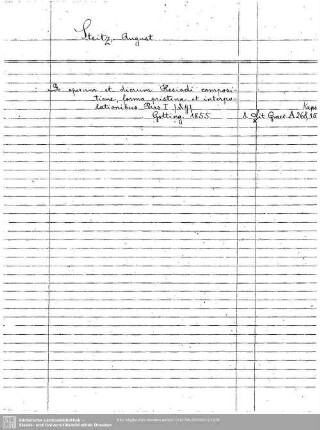 Steitz, August
De operum et dierum Hesiodi composi-
tione, forma pristina et interpo-
lationibus. Pars I
Gotting. 1855
Lit Graec A 268, 15
Sächsische Landesbibliothek -
Staats- und Universitätsbibliothek Dresden